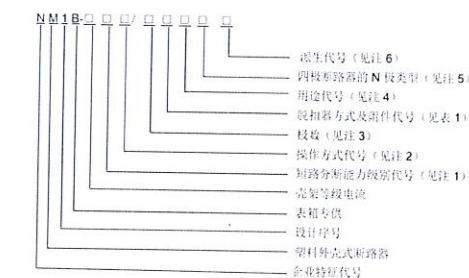 NM1B-□□□/□□□□ □
派生代号（见注6）
四极断路器的N极类型（见注5）
用途代号（见注4）
脱扣器方式及附件代号（见表1）
极数（见注3）
操作方式代号（见注2）
短路分断能力级别代号（见注1）
壳架等级电流
表箱专供
设计序号
塑料外壳式断路器
企业特征代号